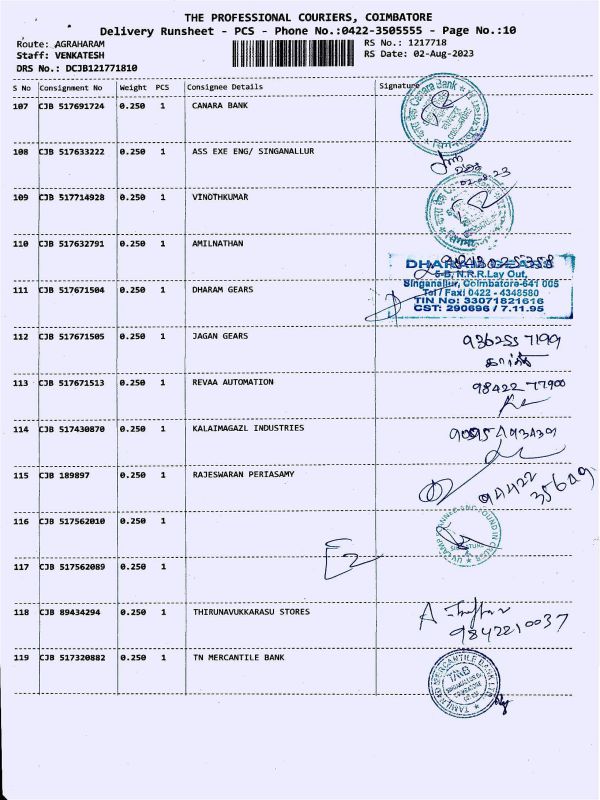 THE PROFESSIONAL COURIERS, COIMBATORE
Delivery Runsheet - PCS - Phone No.:0422-3505555 - Page No.:10
Route: AGRAHARAM
RS No.: 1217718
Staff: VENKATESH
RS Date: 02-Aug-2023
DRS No.: DCJB121771810
S No Consignment No Weight PCS Consignee Details Signature
107 CJB 517691724 0.250 1 CANARA BANK
Canara Bank
108 CJB 517633222 0.250 1 ASS EXE ENG/ SINGANALLUR
109 CJB 517714928 0.250 1 VINOTHKUMAR
110 CJB 517632791 0.250 1 AMILNATHAN
5-B, N.R.R.Lay Out,
111 CJB 517671504 0.250 1 DHARAM GEARS
Singanallur, Coimbatore-641 005
Tel / Fax: 0422 - 4348580
TIN No: 33071821616
CST: 290696 / 7.11.95
112 CJB 517671505 0.250 1 JAGAN GEARS
113 CJB 517671513 0.250 1 REVAA AUTOMATION
98422 77900
114 CJB 517430870 0.250 1 KALAIMAGAZL INDUSTRIES
115 CJB 189897 0.250 1 RAJESWARAN PERIASAMY
94422
35649
116 CJB 517562010 0.250 1
117 CJB 517562089 0.250 1
118 CJB 89434294 0.250 1 THIRUNAVUKKARASU STORES
9842210037
119 CJB 517320882 0.250 1 TN MERCANTILE BANK
TAMILNAD MERCANTILE BANK LTD
TMB